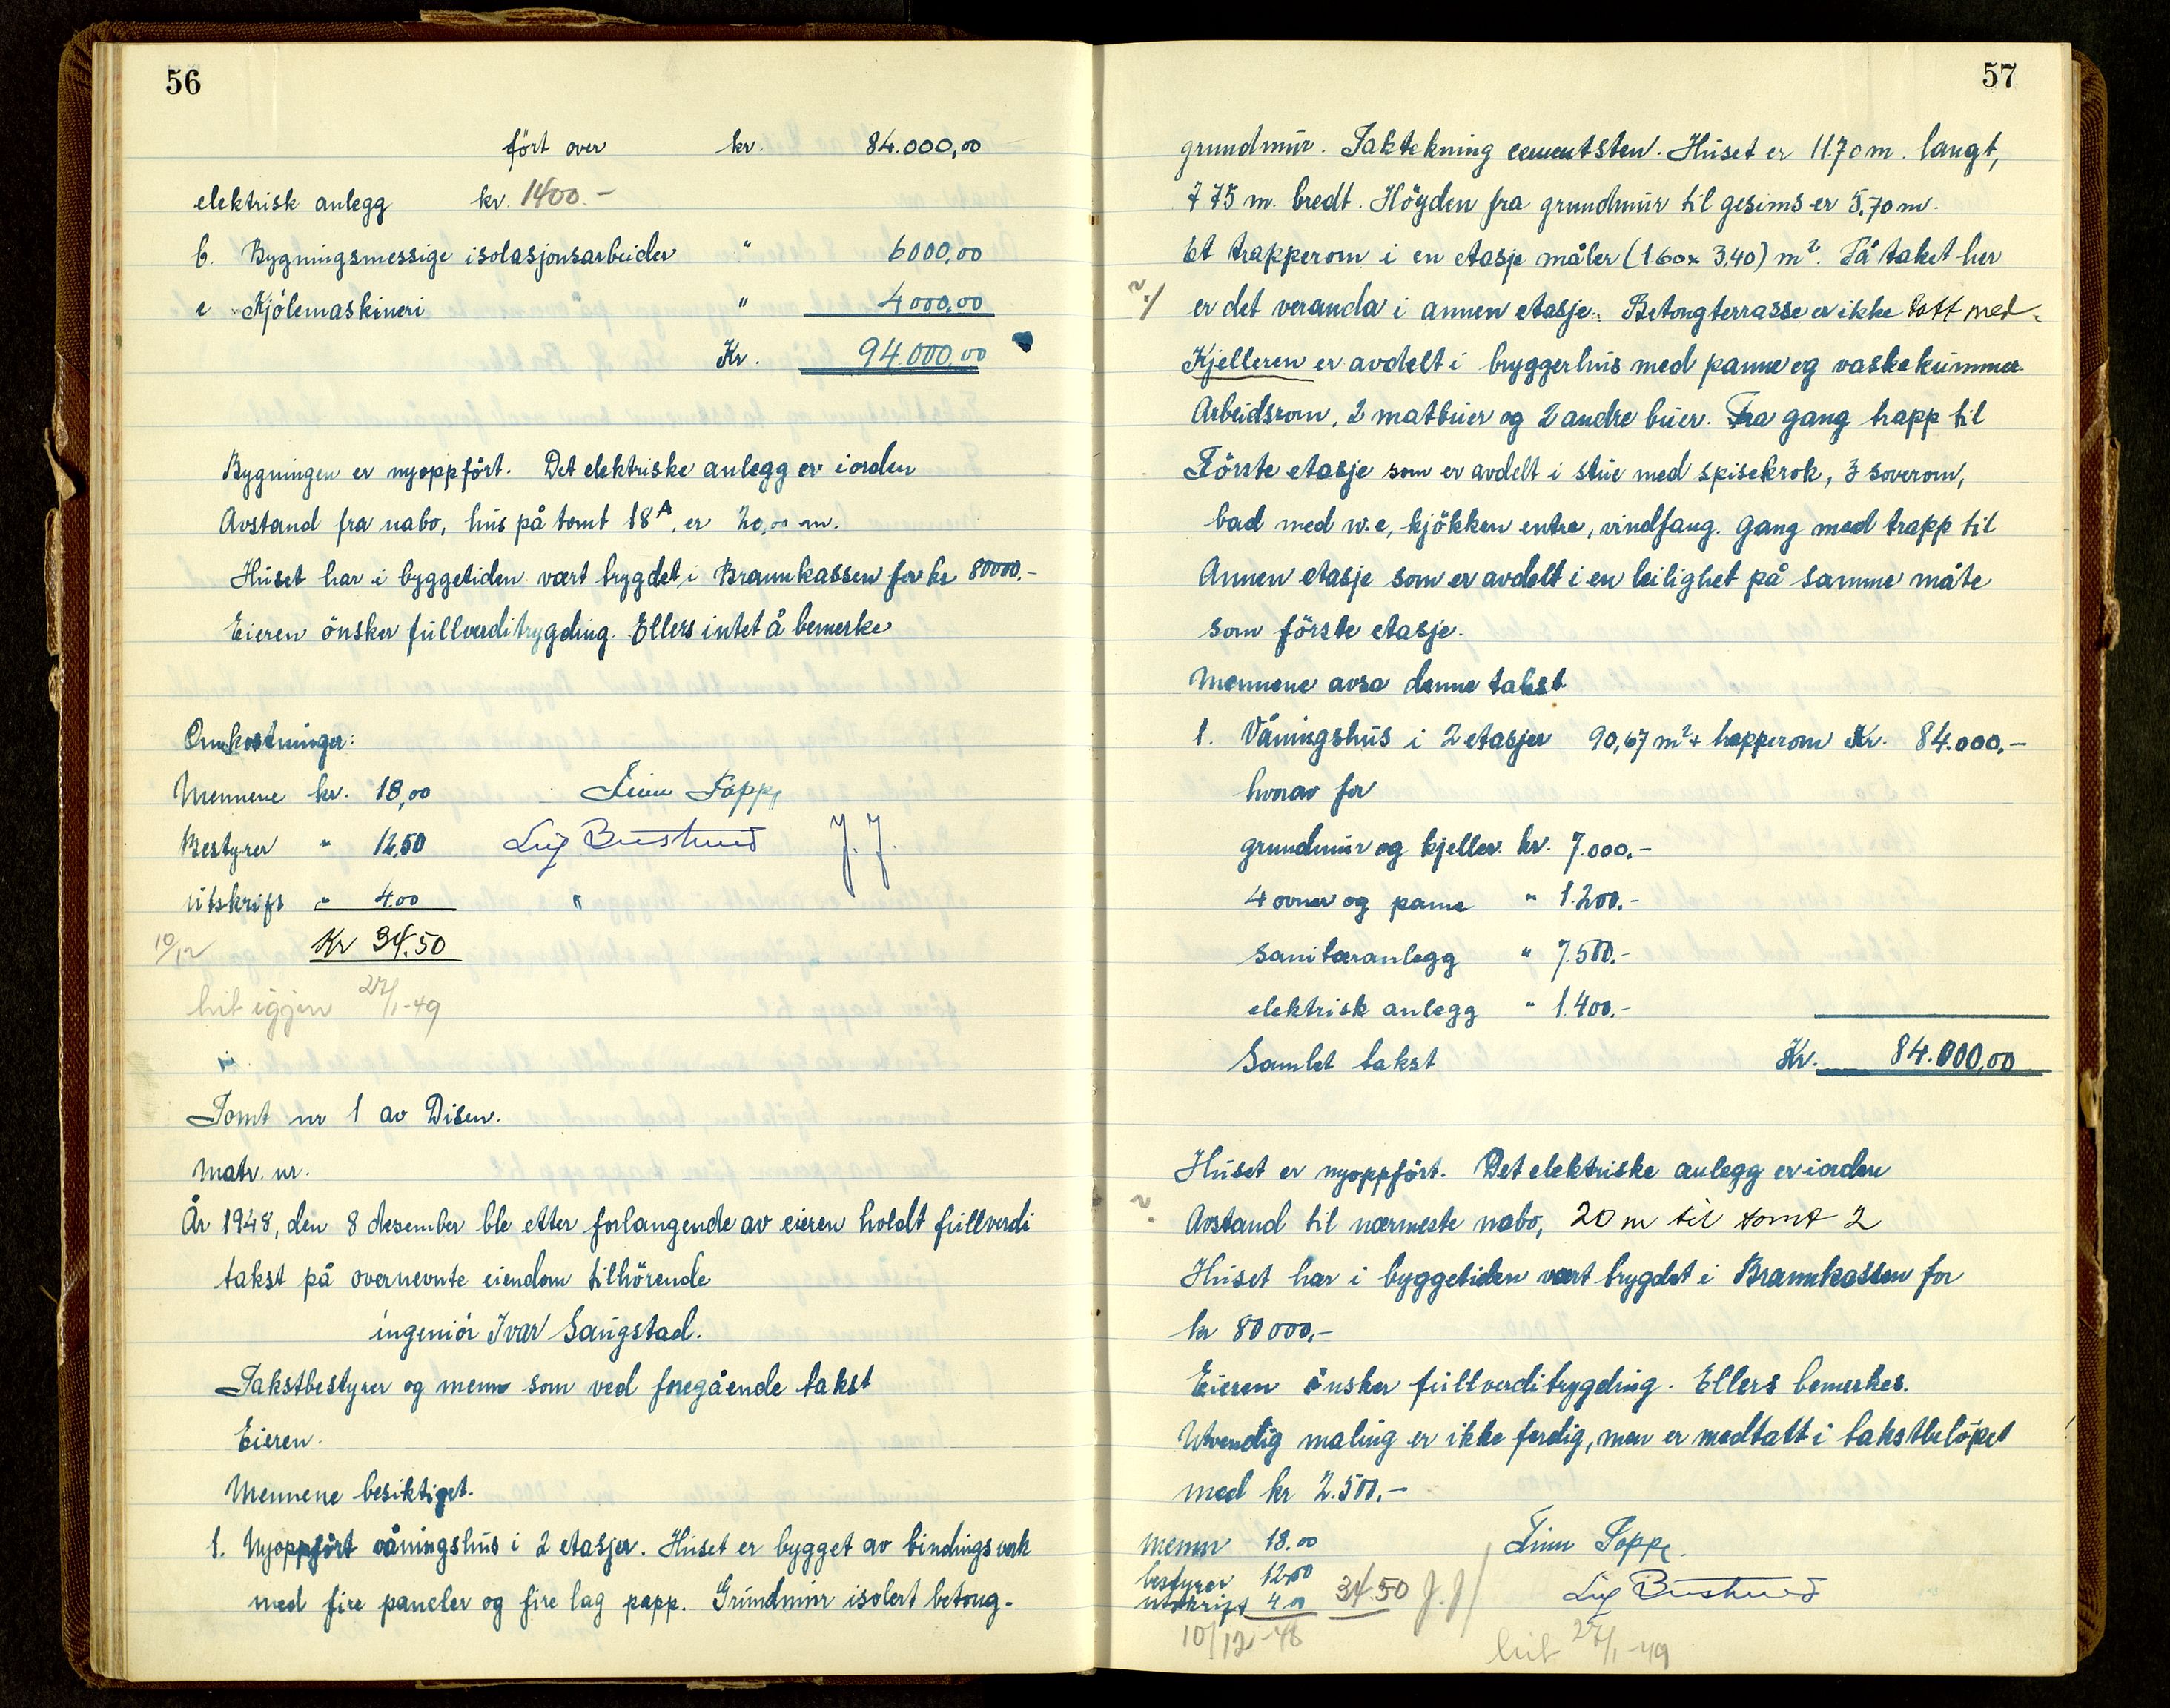 56
ført over kr. 84.000,00
elektrisk anlegg kr. 1400.-
b. Bygningsmessige isolasjonsarbeider " 6000,00
c Kjölemaskineri " 4000,00
Kr. 94.000,00
Bygningen er nyoppfört. Det elektriske anlegg er iorden
Avstand fra nabo, hus på tomt 18A, er 20,00 m.
Huset har i byggetiden vært trygdet i Brannkassen for kr 80000.-
Eieren önsker fullverditrygding. Ellers intet å bemerke
Omkostninger:
Mennene kr. 18,00 Finn Popp
Bestyrer " 12,50 J.J.
utskrift " 4.00 "
10/12 Kr 34.50
hit igjen 27/1-49
Tomt nr 1 av Disen.
Matr. nr.
År 1948, den 8 desember ble etter forlangende av eieren holdt fullverdi
takst på overnevnte eiendom tilhörende
ingeniör Ivar Saugstad.
Takstbestyrer og menn som ved foregående takst
Eieren.
Mennene besiktiget.
1. Nyoppfört våningshus i 2 etasjer. Huset er bygget av bindingsverk
med fire paneler og fire lag papp. Grundmur isolert betong-
57
grundmur. Taktekning cementsten. Huset er 11.70 m. langt,
7.75 m. bredt. Höyden fra grundmur til gesims er 5.70 m.
Et trapperom i en etasje måler (1.60 x 3.40) m². På taket her
er det veranda i annen etasje. Betongterrasse er ikke tatt med.
Kjelleren er avdelt i bryggerhus med panne og vaskekummer
Arbeidsrom, 2 matbuer og 2 andre buer. Fra gang trapp til
Förste etasje som er avdelt i stue med spisekrok, 3 soverom,
bad med w.c, kjökken entre, vindfang. Gang med trapp til
Annen etasje som er avdelt i en leilighet på samme måte
som förste etasje.
Mennene avsa denne takst
1. Våningshus i 2 etasjer 90,67 m² + trapperom Kr. 84.000,-
hvorav for
grundmur og kjeller kr. 7.000.-
4 ovner og panne " 1.200.-
sanitæranlegg " 7.500.-
elektrisk anlegg " 1.400.-
Samlet takst Kr. 84.000,00
Huset er nyoppfört. Det elektriske anlegg er iorden
Avstand til nærmeste nabo, 20 m til tomt 2
Huset har i byggetiden vært trygdet i Brannkassen for
kr 80000,-
Eieren önsker fullverditrygding. Ellers bemerkes.
Utvendig maling er ikke ferdig, men er medtatt i takstbelöpet
med kr 2.500.-
menn 18.00 Finn Popp.
bestyrer 12.50
utskrift 4.00 34.50 J.J
10/12-48
hit 27/1-49